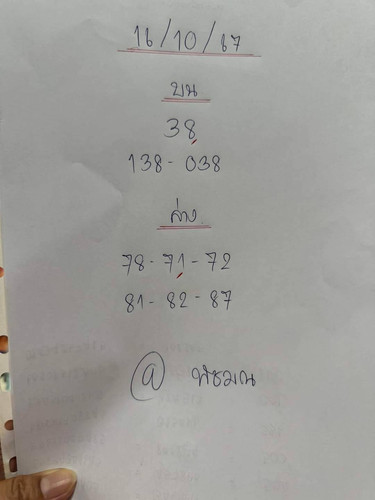 16/10/67
บน
38
138 - 038
ล่าง
78 - 71 - 72
81 - 82 - 87
@ พัชมณ